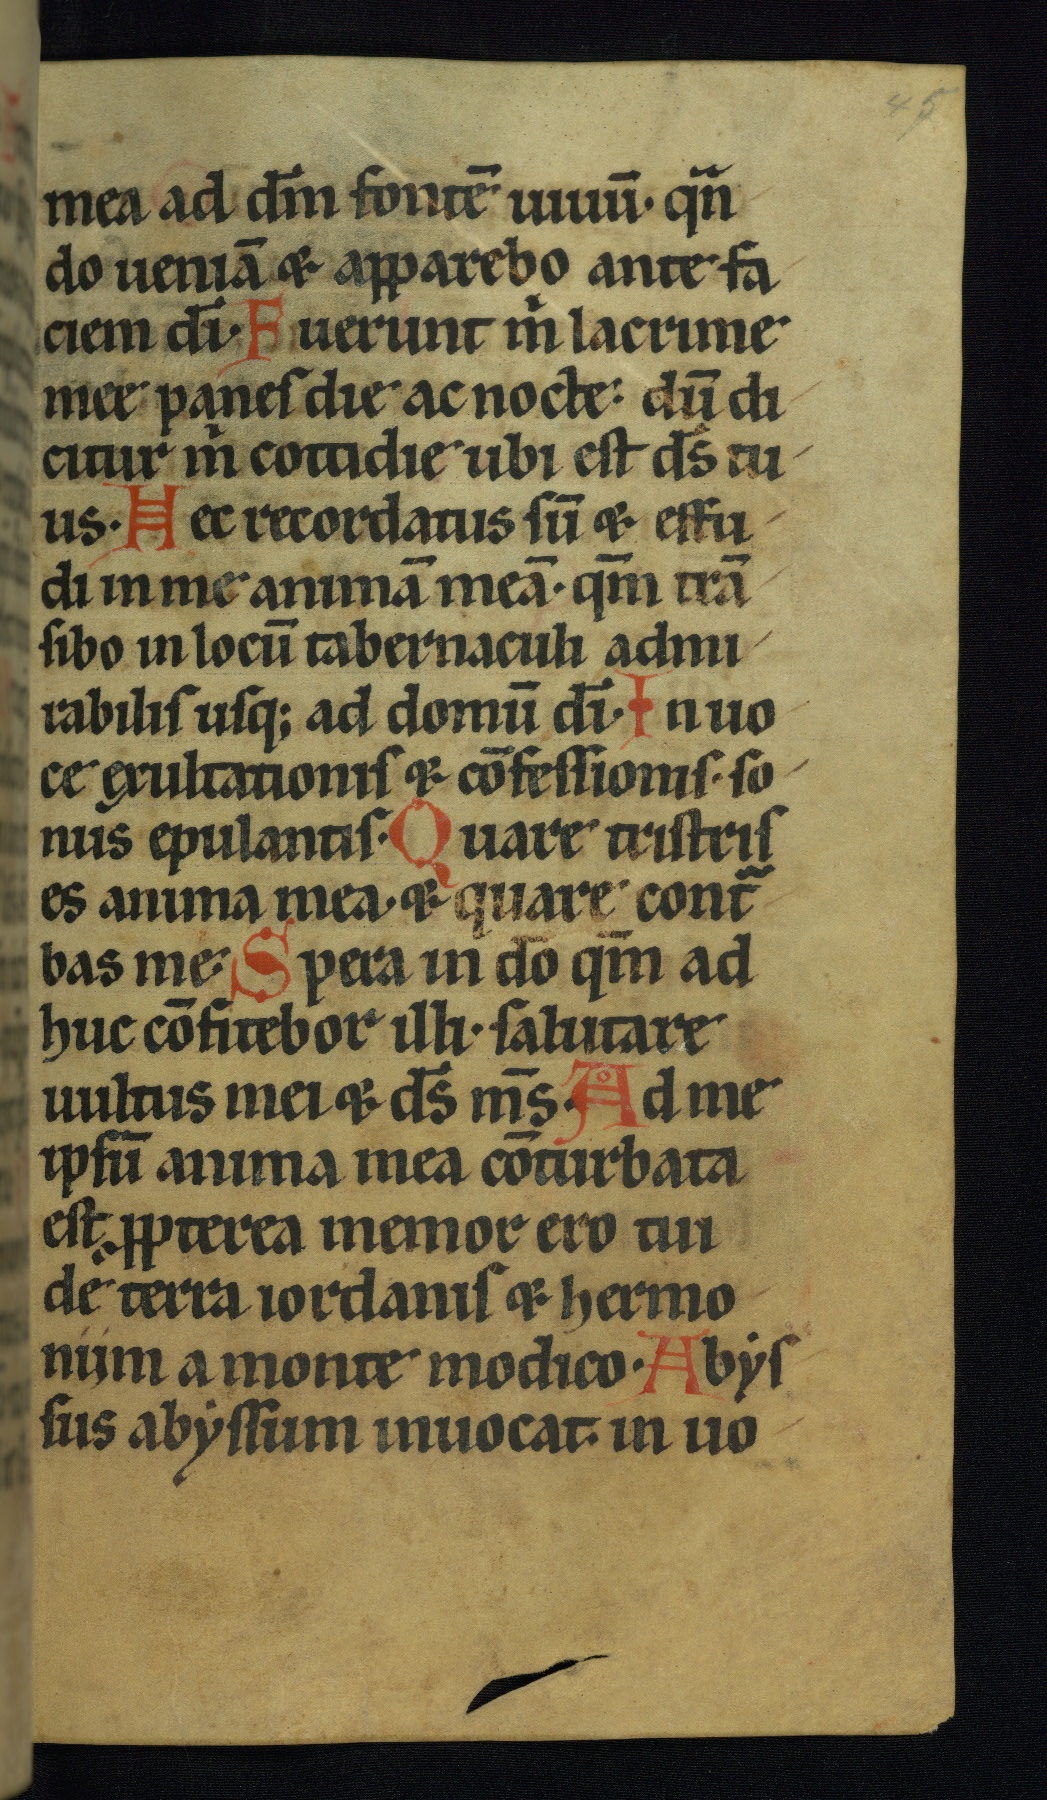 45
mea ad dm̄ fontē uiuū· qn̄
do ueniā & apparebo ante fa
ciem dī· Fuerunt m̄ lacrime
mee panes die ac nocte: dū di
citur m̄ cottidie ubi est ds̄ tu
us· Hec recordatus sū & effu
di in me animā meā· qm̄ trā
sibo in locū tabernaculi admi
rabilis usq; ad domū dī· In uo
ce exultationis & cōfessionis· so
nus epulantis· Quare tristris
es anima mea· & quare cont̄
bas me· Spera in dō qm̄ ad
huc cōfitebor illi· salutare
uultus mei & ds̄ ms̄· Ad me
ipsū anima mea cōturbata
est ꝓpterea memor ero tui
de terra iordanis & hermo
niim a monte modico· Abẏs
sus abẏssum inuocat· in uo